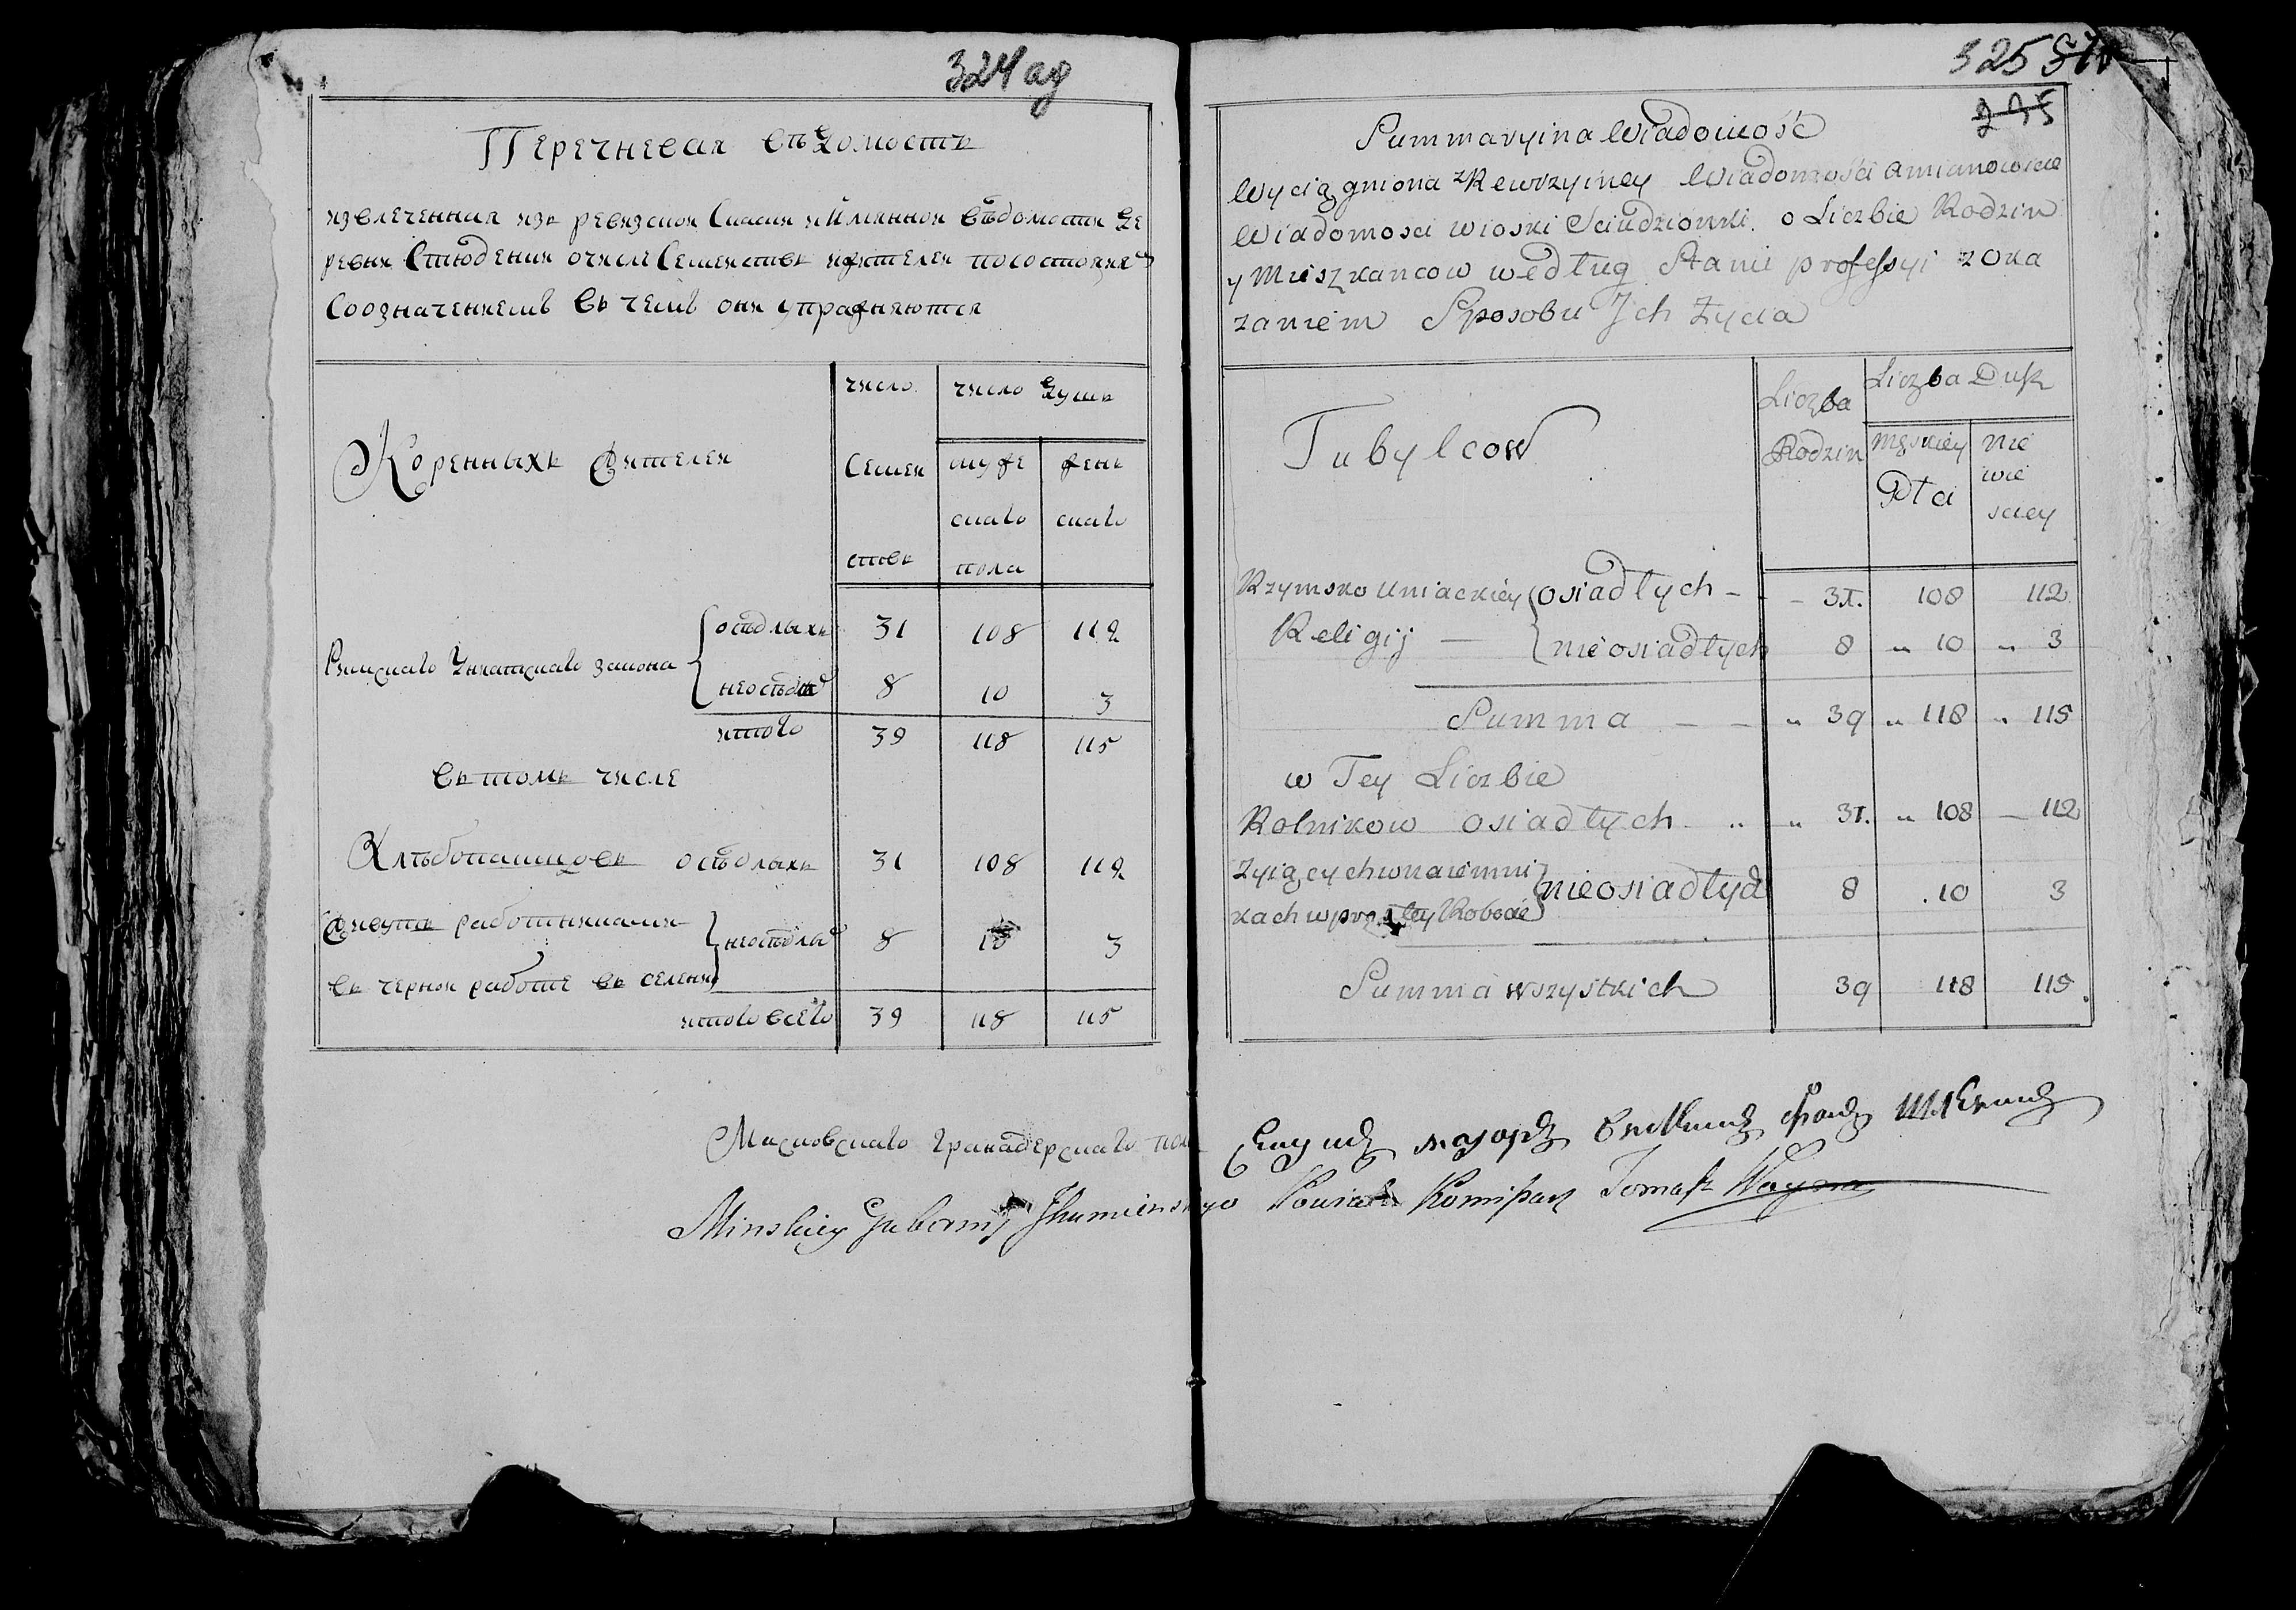 324 ад
Перечневая вѣдомость
извлеченная изъ ревизской Сказки и Имянной вѣдомости де
ревни Стюденки о числе Семействъ и жителей по состоянию
Со означениемъ въ чемъ они упражняются
Коренныхъ жителей
число
Семей
ствъ
число душъ
муже
скаго
пола
жен
скаго
Римскаго Униатскаго закона
осѣдлыхъ 31 108 112
неосѣдлы 8 10 3
итого 39 118 115
въ томъ числе
Хлѣбопашцовъ осѣдлыхъ 31 108 112
Живутъ работниками
въ черной работе въ селении
неосѣдлы 8 10 3
итого всего 39 118 115
325
275
Summaryina Wiadomość
Wyciągniona z Rewizyiney Wiadomości a mianowicie
Wiadomosci wioski Sciudzionki o Liczbie Rodzin
y Mieszkancow według Stanu professyi z oka
zaniem Sposobu Ich Życia
Tubylcow
Liczba
Rodzin
Liczba Dusz
męskiey
Płci
nie
wie
sciey
Rzymsko Uniackiey
Religij
osiadłych 31. 108 112
nieosiadłych 8 „ 10 „ 3
Summa „ 39 „ 118 „ 115
w Tey Liczbie
Rolnikow osiadłych „ „ 31. „ 108 112
Zyiących w naiemni
kach w prostey Robocie
nieosiadłych 8 .10 3
Summa wszystkich 39 118 115
Московскаго гранадерскаго полка маіоръ фонъ
Minskiey Gubernij Ihumienskiego Powiatu Komisarz Tomasz Woyna